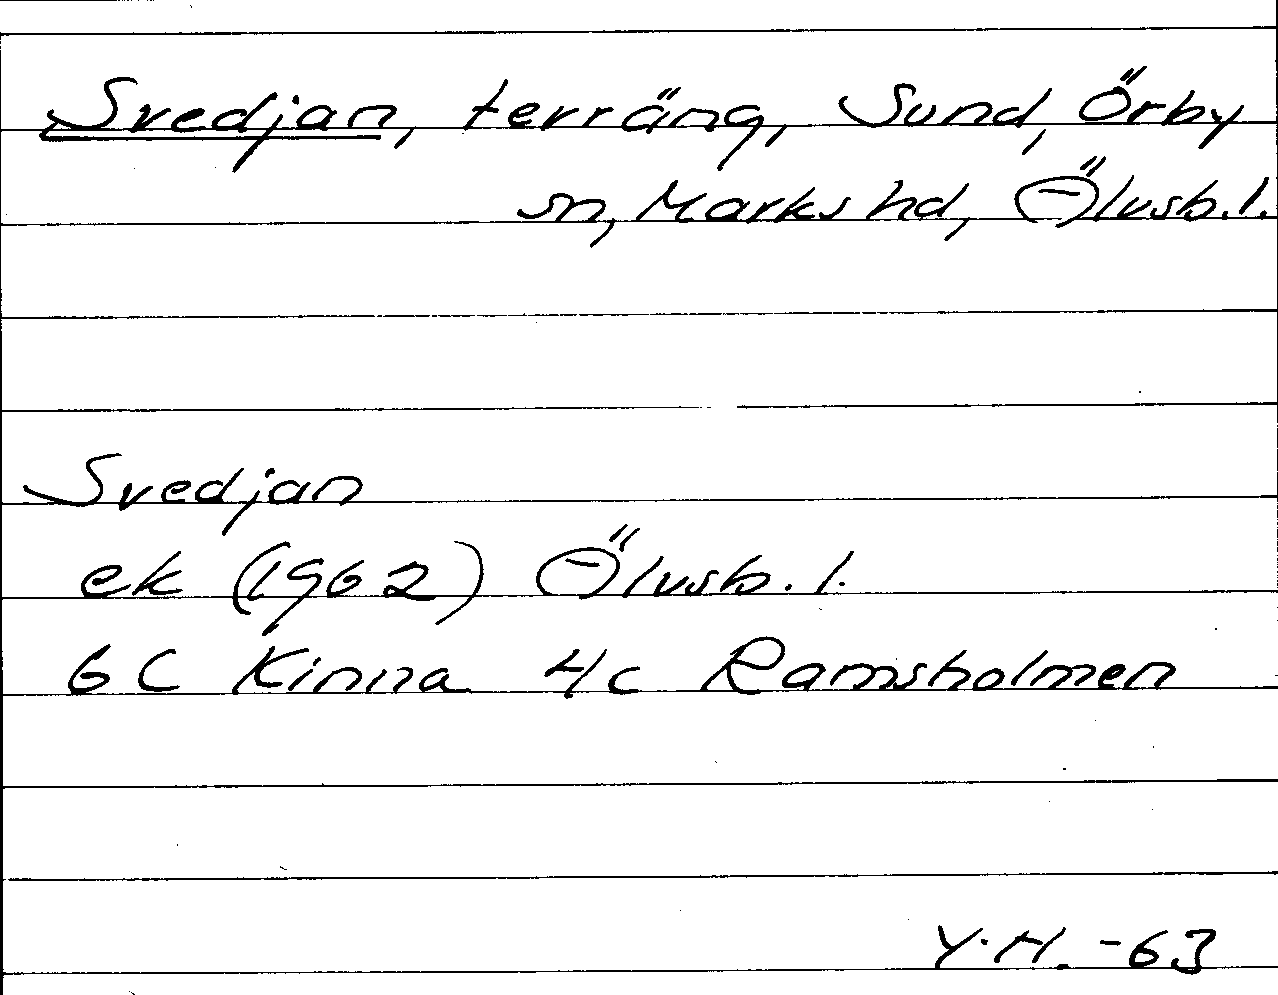 Svedjan, terräng, Sund, Örby
sn, Marks hd, Älvsb. l.
Svedjan
ek (1962) Älvsb. l.
6 C Kinna 4c Ramsholmen
Y. H. -63